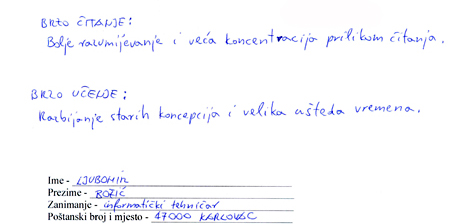 BRZO ČITANJE:
Bolje razumijevanje i veća koncentracija prilikom čitanja.
BRZO UČENJE:
Razbijanje starih koncepcija i velika ušteda vremena.
Ime - LJUBOMIR
Prezime - BOŽIĆ
Zanimanje - informatički tehničar
Poštanski broj i mjesto - 47000 KARLOVAC